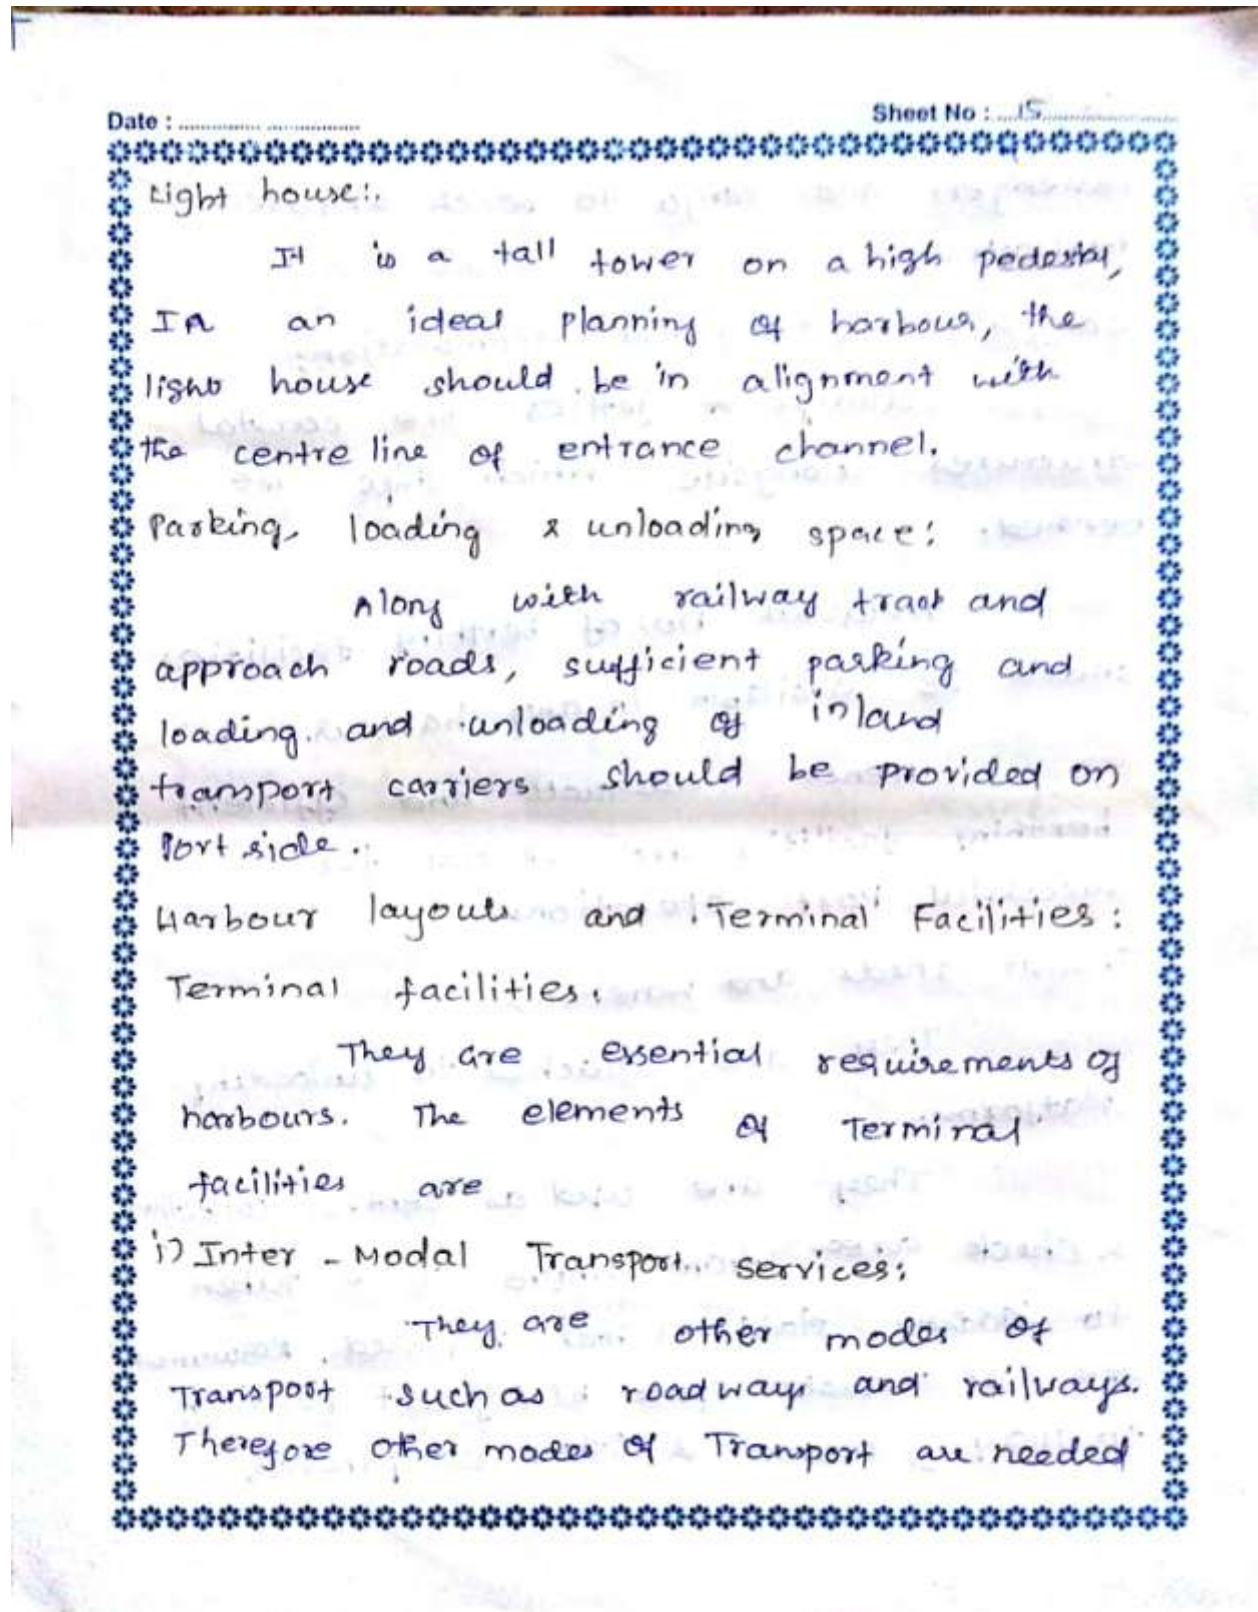 Date : ............ ................
Sheet No : ....15..................
Light house:.
It is a tall tower on a high pedestal,
In an ideal planning of harbour, the
light house should be in alignment with
the centre line of entrance channel.
Parking, loading & unloading space:
Along with railway tract and
approach roads, sufficient parking and
loading and unloading of inland
transport carriers should be provided on
Port side.
Harbour layouts and Terminal Facilities:
Terminal facilities.
They are essential requirements of
harbours. The elements of Terminal
facilities are
i) Inter - Modal Transport services:
They are other modes of
Transport such as roadways and railways.
Therefore other modes of Transport are needed